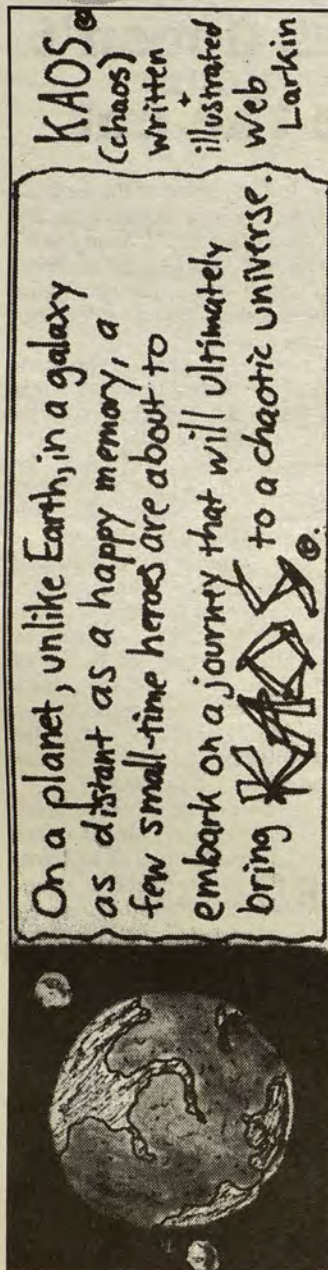 On a planet, unlike Earth, in a galaxy
as distant as a happy memory, a
few small-time heroes are about to
embark on a journey that will ultimately
bring KAOS to a chaotic universe.
©.
KAOS©
(chaos)
written
+
illustrated
Web
Larkin